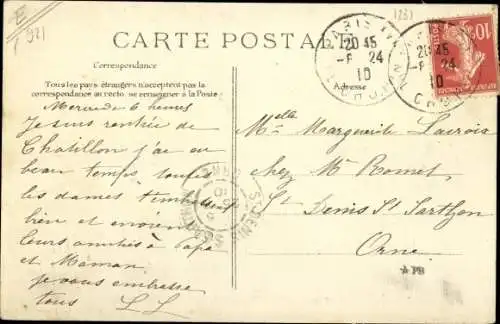 E
(921
(23)
CARTE POSTALE
Correspondance
Tous les pays étrangers n'acceptent pas la
correspondance au recto se renseigner à la Poste
Adresse
PARIS
20 45
-6 24
10
20 45
-6 24
10
10
POSTES
Mercredi 6 heures
Je suis rentrée de
Chatillon j'ai eu
beau temps toutes
les dames t'embrassent
bien et envoient
leurs amitiés à Papa
et Maman.
je vous embrasse
tous LL
Melle Marguerite Lacroix
chez Mr Romet
St Denis St Sarthon
Orne
ORNE
ST DENIS
10
★ PB